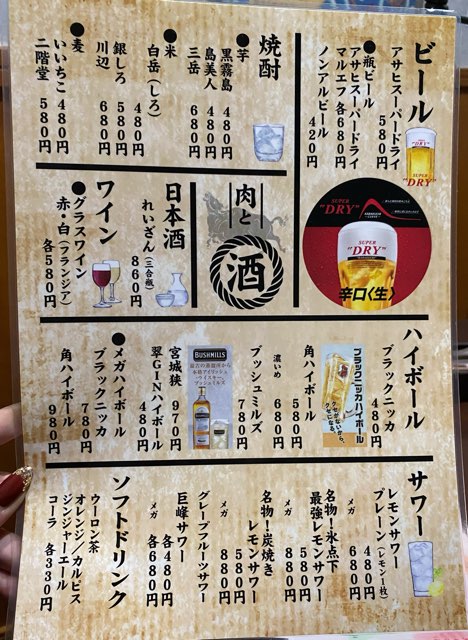 ビール
アサヒスーパードライ
580円
●瓶ビール
アサヒスーパードライ
マルエフ 各680円
ノンアルビール
420円
SUPER
"DRY"
SUPER
"DRY"
ASAHI
SUPER
"DRY"
辛口〈生〉
焼酎
●芋
黒霧島 480円
島美人 480円
三岳 680円
●米
白岳(しろ)
480円
銀しろ 580円
川辺 680円
●麦
いいちこ 480円
二階堂 580円
肉と
酒
日本酒
れいざん(三合瓶)
860円
ワイン
●グラスワイン
赤・白(フランジア)
各580円
ハイボール
ブラックニッカ
480円
ブラックニッカハイボール
クセがないから、
クセになる。
角ハイボール
580円
濃いめ 680円
ブッシュミルズ
780円
BUSHMILLS
宮城狭 970円
翠GINハイボール
480円
●メガハイボール
ブラックニッカ
780円
角ハイボール
980円
サワー
レモンサワー
480円
プレーン(レモン1枚)
480円
メガ 680円
名物!氷点下
最強レモンサワー
580円
メガ 880円
名物!炭焼き
レモンサワー
580円
メガ 880円
グレープフルーツサワー
巨峰サワー
各480円
メガ 各680円
ソフトドリンク
ウーロン茶
オレンジ/カルピス
ジンジャーエール
コーラ 各330円